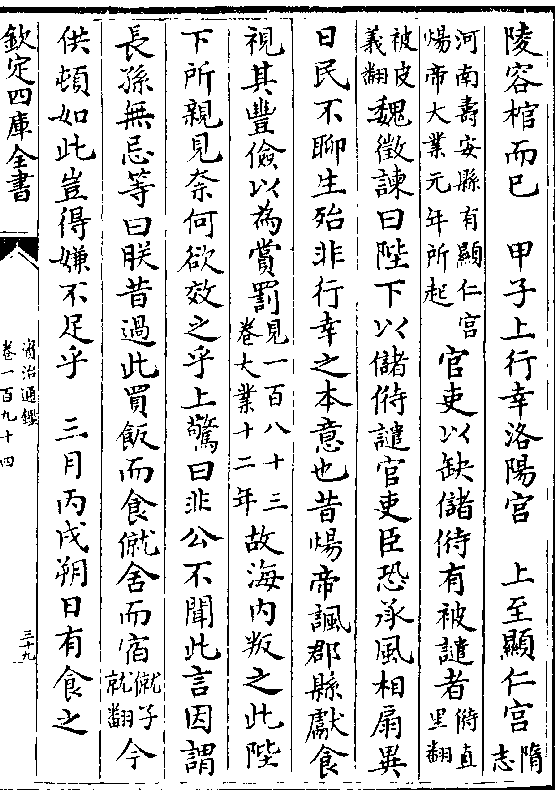 陵容棺而已　甲子上行幸洛陽宫　上至顯仁宫隋志
河南壽安縣有顯仁宫煬帝大業元年所起官吏以缺儲偫有被譴者偫直里翻
被皮義翻魏徵諫曰陛下以儲偫譴官吏臣恐承風相扇異
日民不聊生殆非行幸之本意也昔煬帝諷郡縣獻食
視其豐儉以為賞罰見一百八十三卷大業十二年故海内叛之此陛
下所親見奈何欲效之乎上驚曰非公不聞此言因謂
長孫無忌等曰朕昔過此買飯而食僦舍而宿僦子就翻今
供頓如此豈得嫌不足乎　三月丙戌朔日有食之
欽定四庫全書
資治通鑑
卷一百九十四
三十九